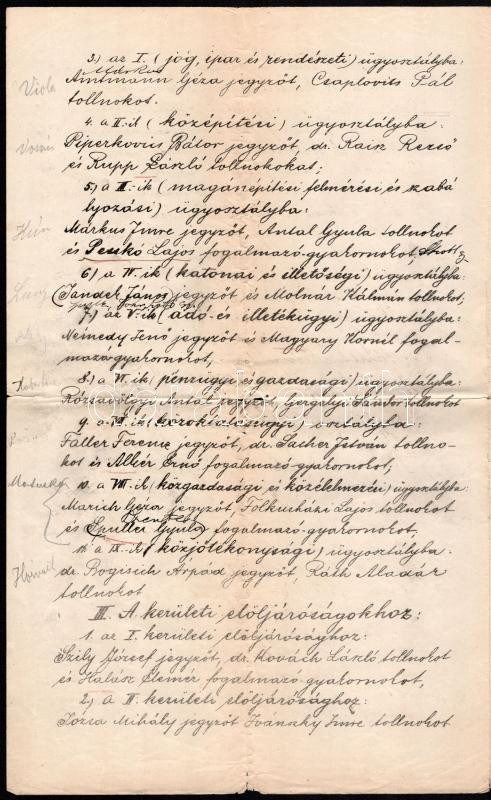 3.) az I. (jog, ipar és rendészeti) ügyosztályba:
Amtmann Géza jegyzőt, Csaplovits Pál
Viola
tollnokot.
4. a II.-ik (középítési) ügyosztályba:
Piperkovics Bátor jegyzőt, dr. Raisz Rezső
és Rupp László tollnokokat;
5.) a III.-ik (magánépítési felmérési és szabá
lyozási) ügyosztályba:
Márkus Imre jegyzőt, Antal Gyula tollnokot
és Peskó Lajos fogalmazó-gyakornokot,
6.) a IV.-ik (katonai és illetőségi) ügyosztályba:
(Jandek János) jegyzőt és Molnár Kálmán tollnokot;
7.) az V.-ik (adó- és illetékügyi) ügyosztályba:
Némedy Jenő jegyzőt és Magyary Kornél fogal-
mazó-gyakornokot,
8.) a VI.-ik (pénzügyi és gazdasági) ügyosztályba:
Rózsavölgyi Antal jegyzőt, Gergely Sándor tollnokot
9. a VII.-ik osztályba:
Faller Ferenc jegyzőt, dr. Sacher István tollno-
kot és Albér Ernő fogalmazó-gyakornokot,
10. a VIII.-ik (közgazdasági és közélelmezési) ügyosztályba:
Marich Géza jegyzőt, Folkusházi Lajos tollnokot
és Gyula fogalmazó-gyakornokot,
11. a IX.-ik (közjótékonysági) ügyosztályba:
dr. Bogisich Árpád jegyzőt, Ráth Aladár
tollnokot
III. A kerületi elöljáróságokhoz:
1. az I. kerületi elöljárósághoz:
Szily József jegyzőt, dr. Kovách László tollnokot
és Halász Elemér fogalmazó-gyakornokot,
2.) a II. kerületi elöljárósághoz:
Józsa Mihály jegyzőt Ivánszky Imre tollnokot